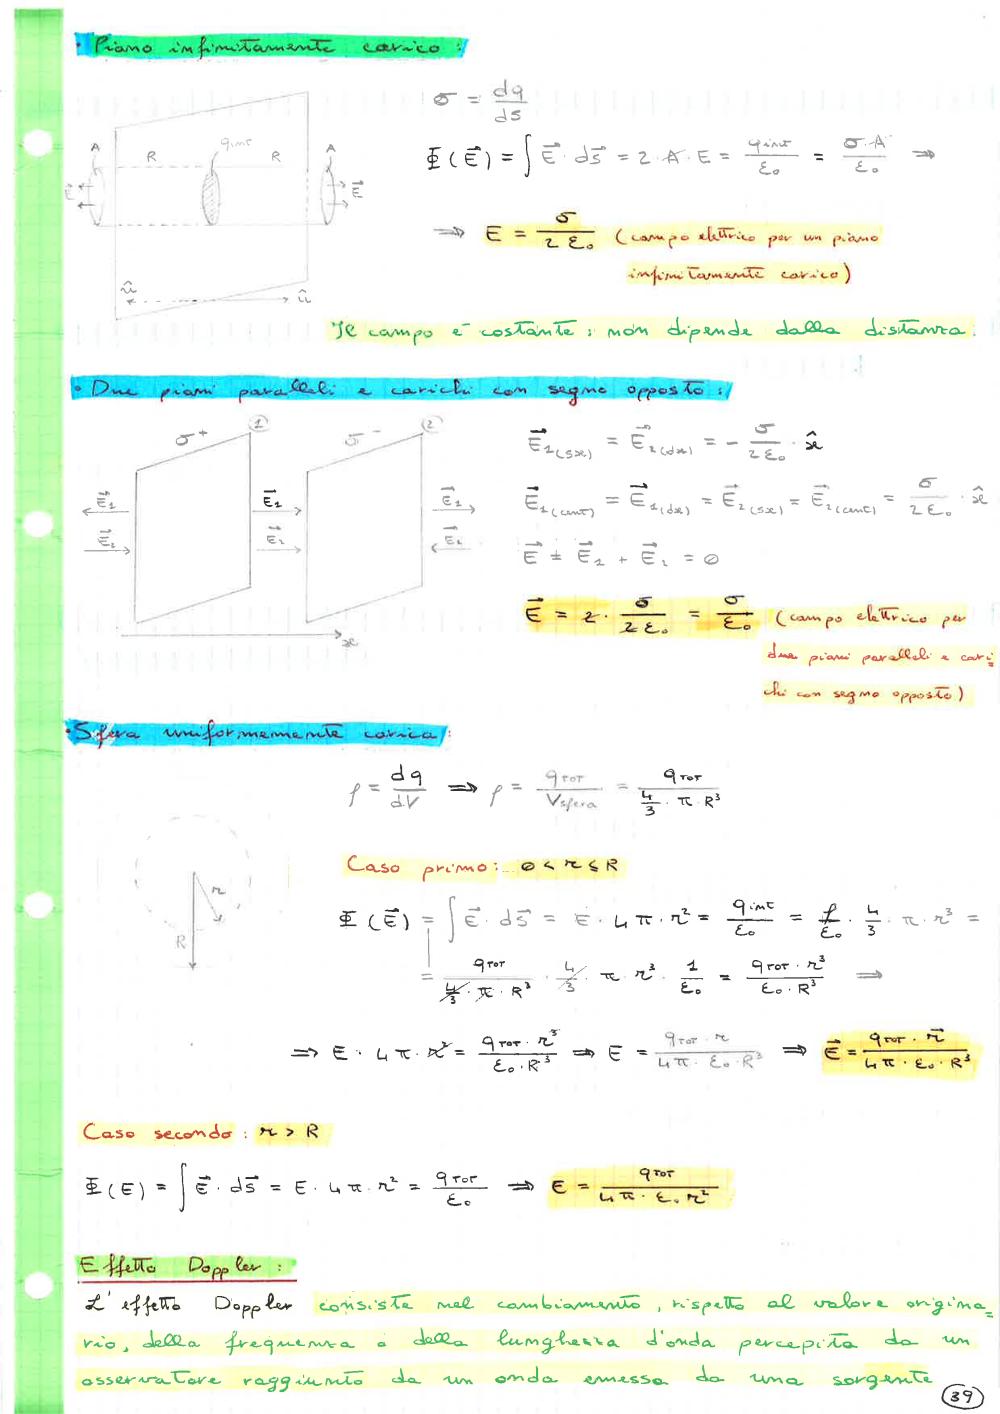 • Piano infinitamente carico:
σ = dq/ds
A R qint R A
Φ(E⃗) = ∫ E⃗ · ds⃗ = 2 · A · E = qint/ε₀ = σ·A/ε₀ ⇒
E⃗ E⃗
⇒ E = σ/2ε₀ (campo elettrico per un piano
infinitamente carico)
û û
Il campo è costante: non dipende dalla distanza.
• Due piani paralleli e carichi con segno opposto:
σ⁺ ① σ⁻ ②
E⃗₁(sx) = E⃗₂(dx) = - σ/2ε₀ · x̂
E⃗₁ E⃗₁ E⃗₁
E⃗₁(cent) = E⃗₁(dx) = E⃗₂(sx) = E⃗₂(cent) = σ/2ε₀ · x̂
E⃗₂ E⃗₂ E⃗₂
E⃗ = E⃗₁ + E⃗₂ = 0
E⃗ = 2 · σ/2ε₀ = σ/ε₀ (campo elettrico per
due piani paralleli e cari=
chi con segno opposto)
x
• Sfera uniformemente carica:
ρ = dq/dV ⇒ ρ = qTOT/Vsfera = qTOT/(4/3 · π · R³)
Caso primo: 0 < r ≤ R
r
R
Φ(E⃗) = ∫ E⃗ · ds⃗ = E · 4π · r² = qint/ε₀ = ρ/ε₀ · 4/3 · π · r³ =
= qTOT/(4/3 · π · R³) · 4/3 · π · r³ · 1/ε₀ = qTOT · r³/(ε₀ · R³) ⇒
⇒ E · 4π · r² = qTOT · r³/(ε₀ · R³) ⇒ E = qTOT · r/(4π · ε₀ · R³) ⇒ E⃗ = qTOT · r⃗/(4π · ε₀ · R³)
Caso secondo: r > R
Φ(E) = ∫ E⃗ · ds⃗ = E · 4π · r² = qTOT/ε₀ ⇒ E = qTOT/(4π · ε₀ r²)
Effetto Doppler:
L'effetto Doppler consiste nel cambiamento, rispetto al valore origina=
rio, della frequenza o della lunghezza d'onda percepita da un
osservatore raggiunto da un onda emessa da una sorgente
39